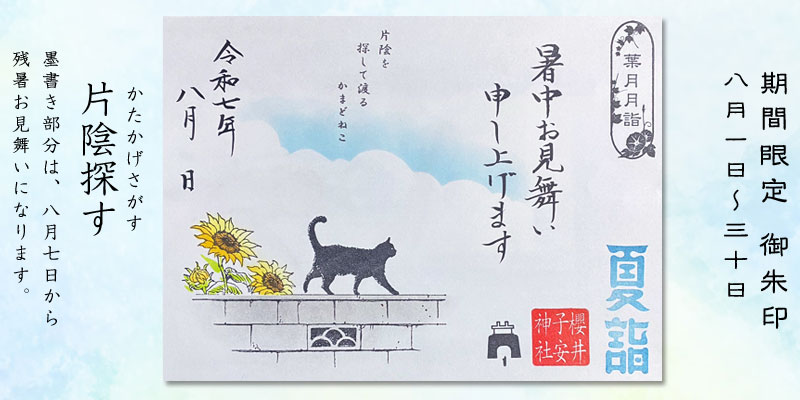 期間限定 御朱印
八月一日～三十日
葉月月詣
暑中お見舞い
申し上げます
夏詣
櫻井
子安
神社
片陰を
探して渡る
かまどねこ
令和七年
八月 日
かたかげさがす
片陰探す
墨書き部分は、八月七日から
残暑お見舞いになります。